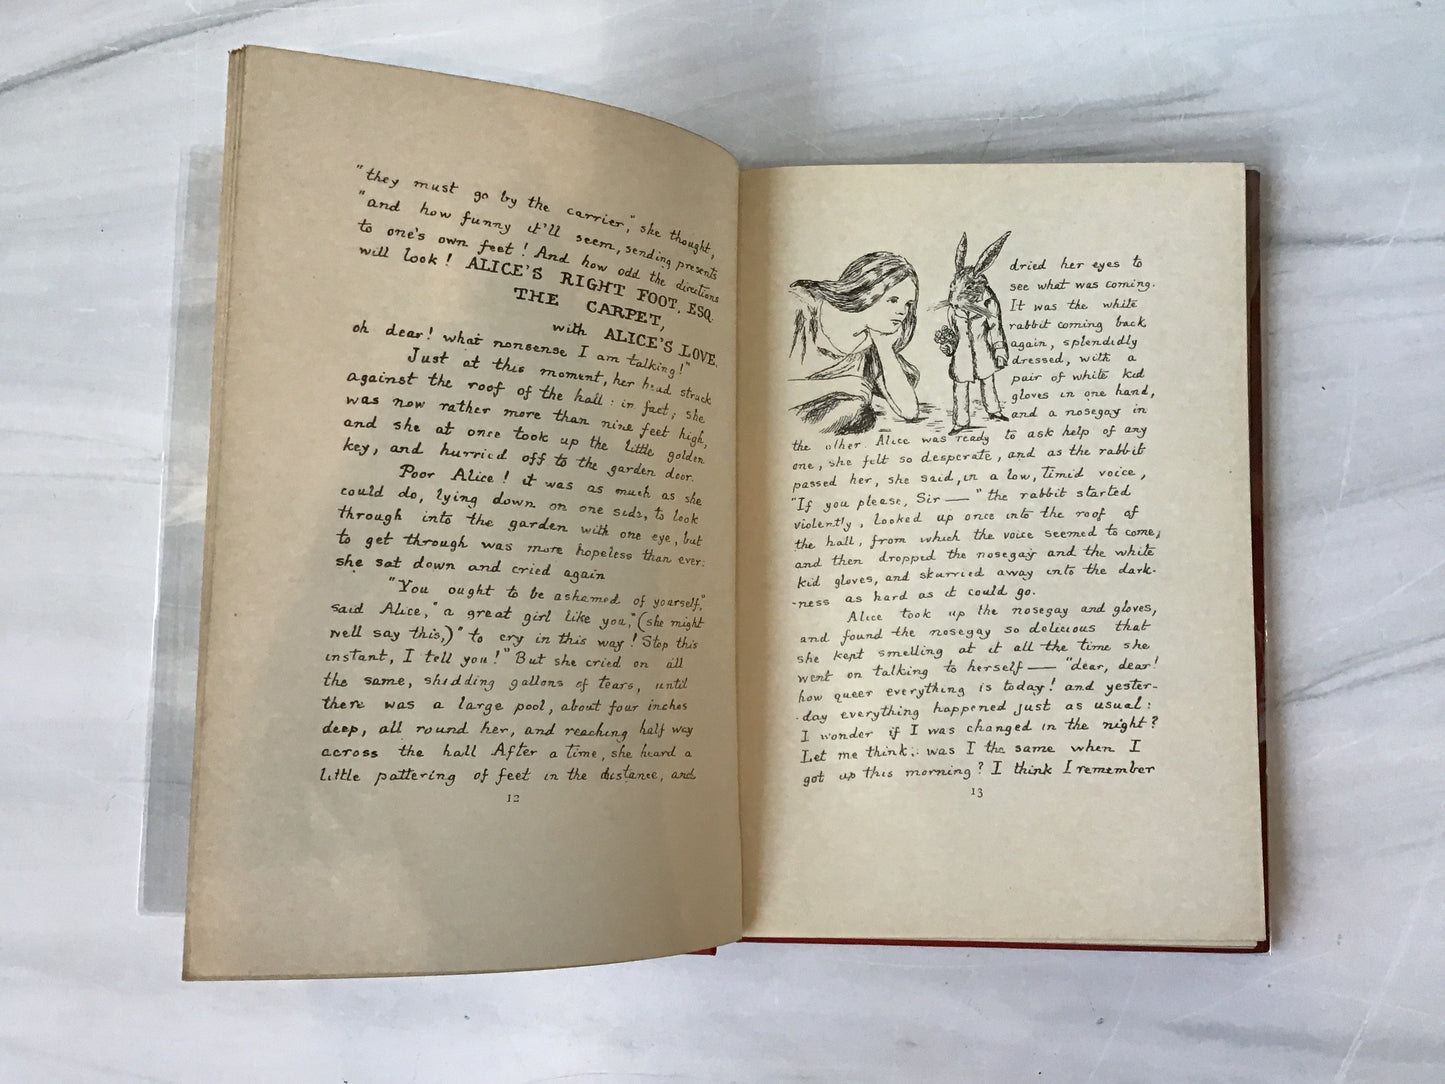 "they must go by the carrier," she thought,
"and how funny it'll seem, sending presents
to one's own feet! And how odd the directions
will look! ALICE'S RIGHT FOOT, ESQ.
THE CARPET,
with ALICE'S LOVE.
oh dear! what nonsense I am talking!"
Just at this moment, her head struck
against the roof of the hall: in fact, she
was now rather more than nine feet high,
and she at once took up the little golden
key, and hurried off to the garden door.
Poor Alice! it was as much as she
could do, lying down on one side, to look
through into the garden with one eye, but
to get through was more hopeless than ever:
she sat down and cried again
"You ought to be ashamed of yourself,"
said Alice, "a great girl like you," (she might
well say this,) "to cry in this way! Stop this
instant, I tell you!" But she cried on all
the same, shedding gallons of tears, until
there was a large pool, about four inches
deep, all round her, and reaching half way
across the hall After a time, she heard a
little pattering of feet in the distance, and
12
dried her eyes to
see what was coming.
It was the white
rabbit coming back
again, splendidly
dressed, with a
pair of white kid
gloves in one hand,
and a nosegay in
the other. Alice was ready to ask help of any
one, she felt so desperate, and as the rabbit
passed her, she said, in a low, timid voice,
"If you please, Sir—" the rabbit started
violently, looked up once into the roof of
the hall, from which the voice seemed to come,
and then dropped the nosegay and the white
kid gloves, and skurried away into the dark-
-ness as hard as it could go.
Alice took up the nosegay and gloves,
and found the nosegay so delicious that
she kept smelling at it all the time she
went on talking to herself— "dear, dear!
how queer everything is today! and yester-
-day everything happened just as usual:
I wonder if I was changed in the night?
Let me think: was I the same when I
got up this morning? I think I remember
13